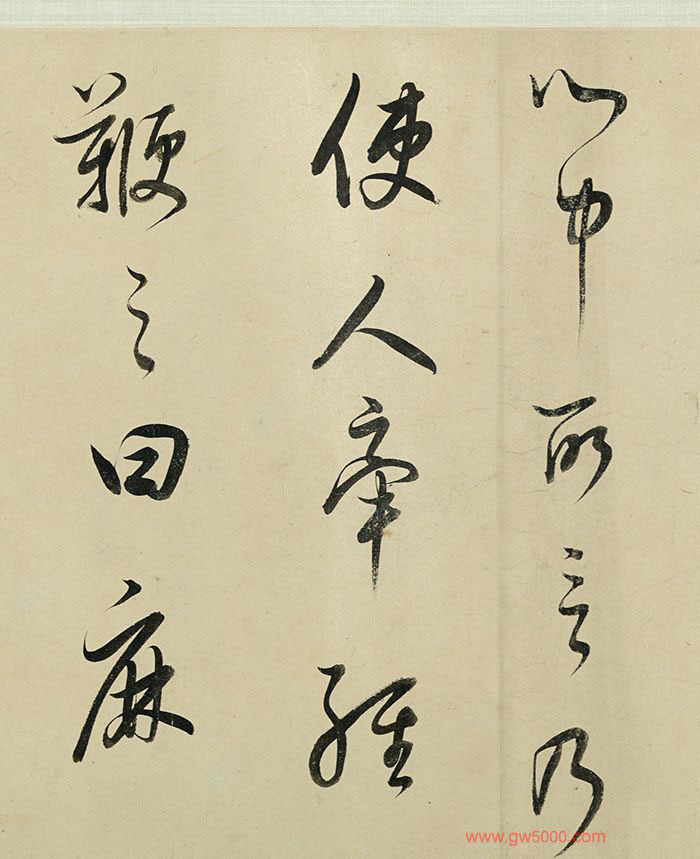 心中所言乃
使人牽經
鞭之曰麻
www.gw5000.com